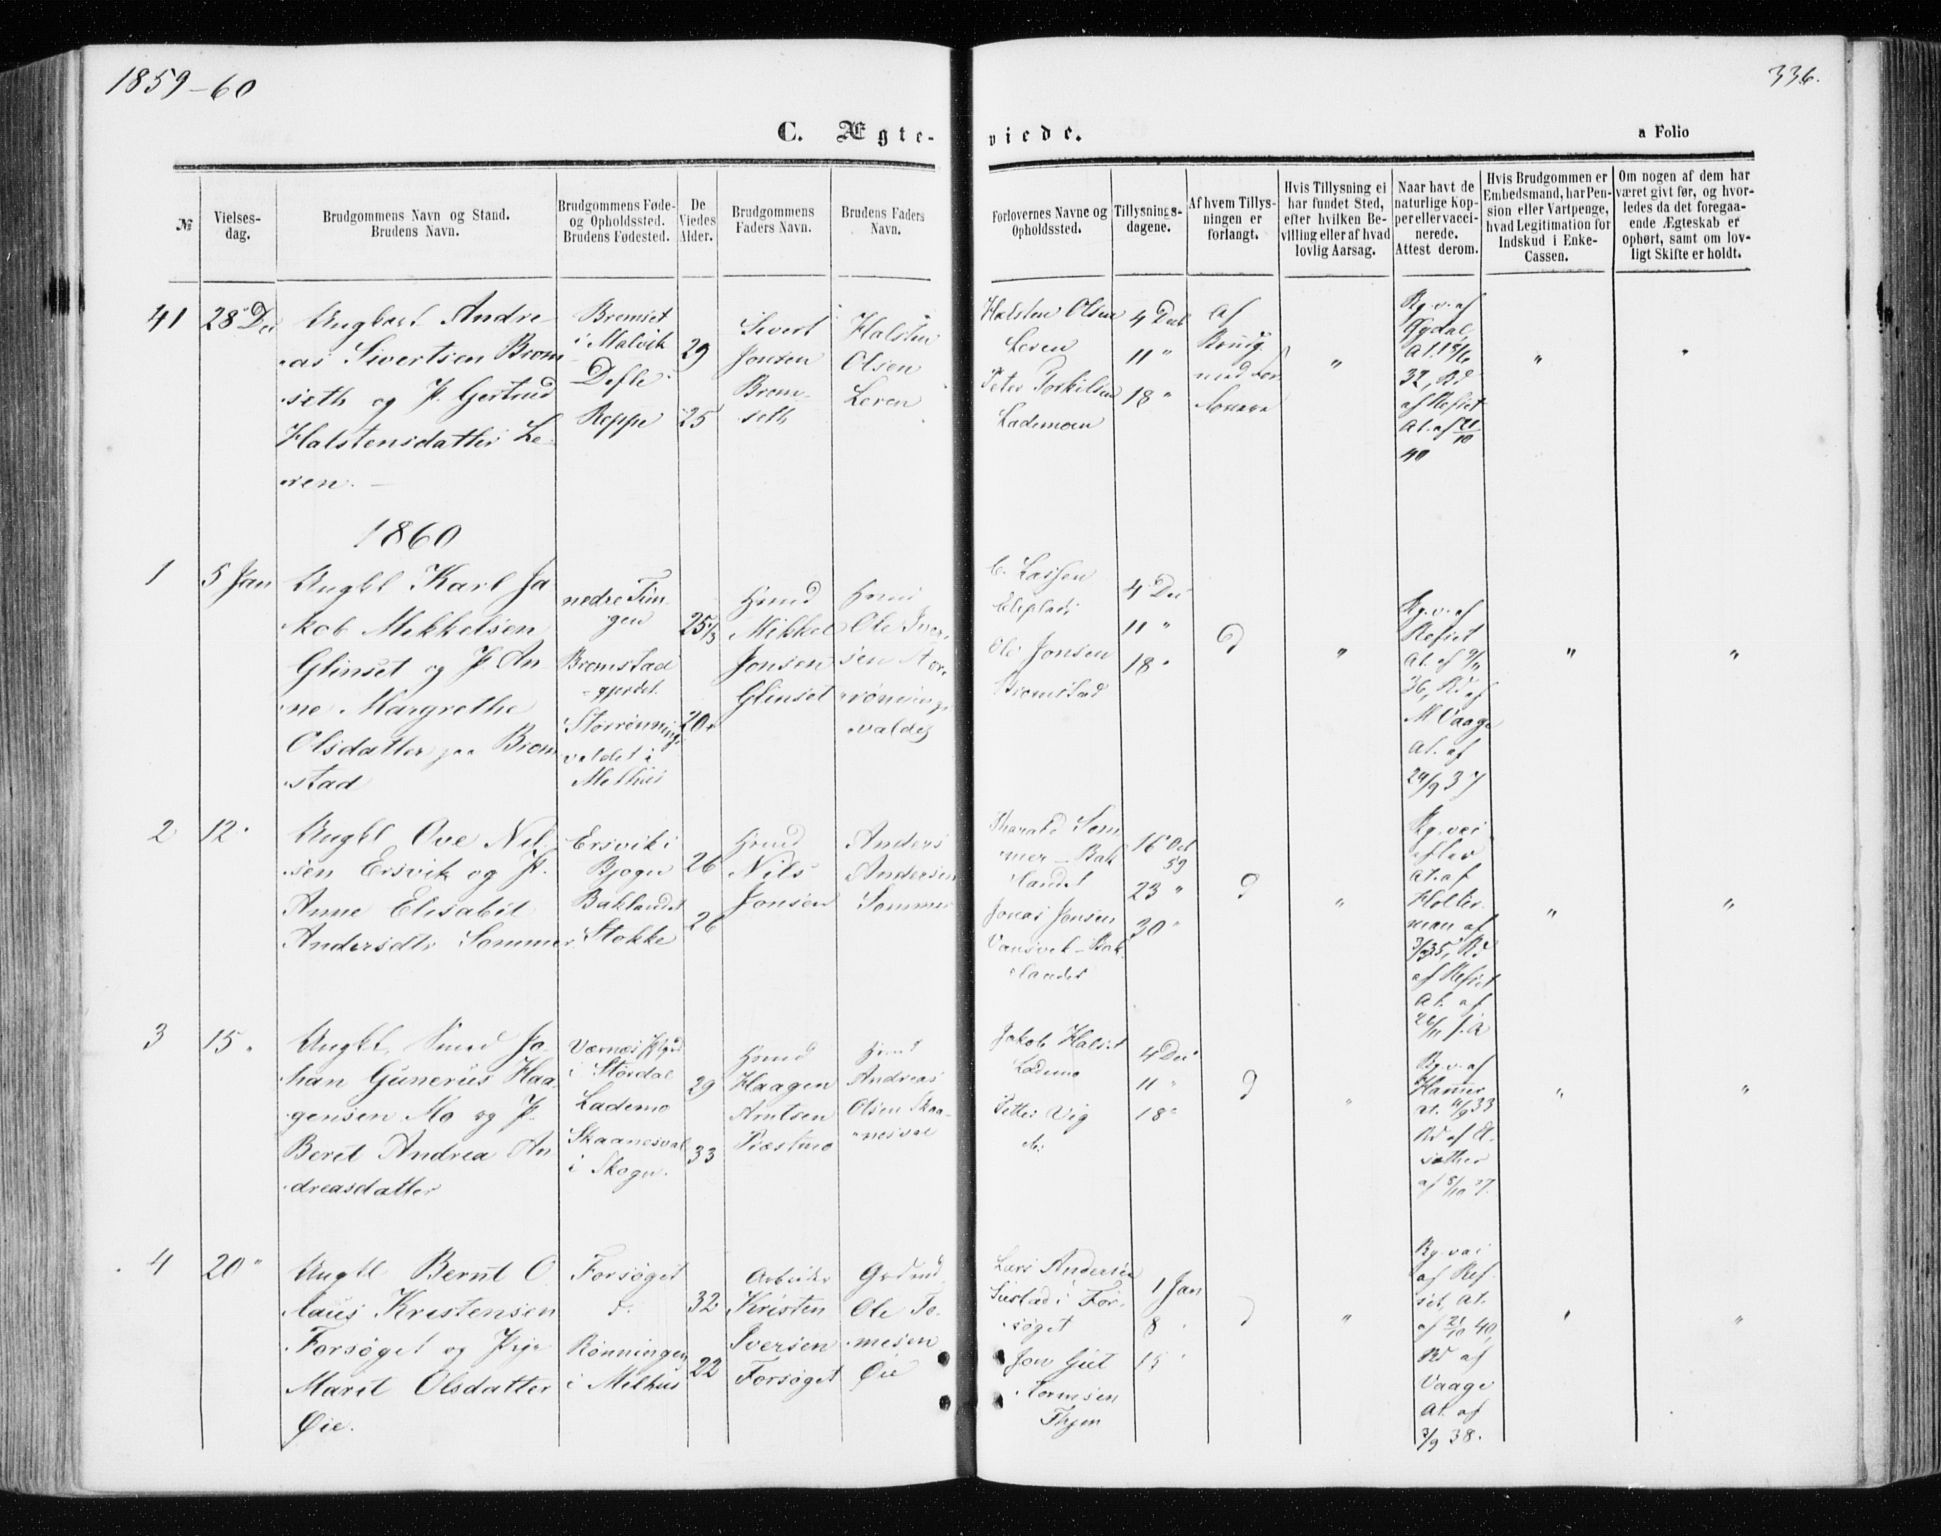 1859-60
336.
C. Ægte-
viede.
a Folio
№
Vielses-
dag.
Brudgommens Navn og Stand.
Brudens Navn.
Brudgommens Føde-
og Opholdssted.
Brudens Fødested.
De
Viedes
Alder.
Brudgommens
Faders Navn.
Brudens Faders
Navn.
Forlovernes Navne og
Opholdssted.
Tillysnings-
dagene.
Af hvem Tillys-
ningen er
forlangt.
Hvis Tillysning ei
har fundet Sted,
efter hvilken Be-
villing eller af hvad
lovlig Aarsag.
Naar havt de
naturlige Kop-
per eller vacci-
nerede.
Attest derom.
Hvis Brudgommen er
Embedsmand, har Pen-
sion eller Vartpenge,
hvad Legitimation for
Indskud i Enke-
Cassen.
Om nogen af dem har
været givt før, og hvor-
ledes da det foregaa-
ende Ægteskab er
ophørt, samt om lov-
ligt Skifte er holdt.
41
28 De
Ungkarl Andre
as Sivertsen Brom
seth og P. Gertrud
Halstensdatter Le
ren.
Bromset
i Malvik
Defle
Reppe
29
25
Sivert
Jonsen
Brom
seth
Halsten
Olsen
Leren
Halsten Olsen
Leren
Peter Torkilsen
Lademoen
4 Deb
11 "
18 "
af
Brudg
med For
lovere
"
Bg. v. af
Tydal
At. 18/6
32, Bd
af Refset
At. af 21/10
40
"
"
1860
1
5 Jan
Ungkl Karl Ja
kob Mikkelsen
Glinset og P. An
ne Margrethe
Olsdatter paa Brom
stad
nedre Tun
gen
Bromstad
gjerdet
Størrønnings
valdet i
Melhus
25 1/3
20
Hmd
Mikkel
Jonsen
Glinset
Ole Iver
sen Stor
rønnings
valdet
C. Lassen
Ole Jonsen
Bromstad
4 De
11 "
18 "
d
"
Bg. v. af
Refset
At. af 9/11
36, Bd af
M Vaage
At. af
24/9 37
"
"
2
12 "
Ungkl Ove Nil
sen Ersvik og P.
Anne Elisabet
Andersdtr Sommer
Ersvik i
Bjogn
Baklandet
Stokke
26
26
Hmd
Nils
Jonsen
Anders
Andersen
Sommer
Som
mer - Bak
landet
Jonas Jonsen
Vansvik - Bak
landet
16 Oct
59
23 "
30 "
d
"
Bg. vac
efter
At. af
Holter
man af
3/9 35, Bd
af Refset
At. af
26/11 f. A
"
"
3
15 "
Ungkl. Jo
han Gunerus Haa
gensen Mo og P.
Beret Andrea An
dreasdatter
Værnes
i Stordal
Lademo
Skaanesval
i Skogn.
29
33
Hmd
Haagen
Arntsen
Præstmo
Hmd
Andreas
Olsen Skaa
nesval
Jakob Halset
Lademo
Petter Vig
do:
4 De
11 "
18 "
d
"
Bg. v. af
Hamer
At. 11/9 33
Bd af
af 8/10 27.
"
"
4
20 "
Ungkl Bernt O
laus Kristensen
Forsøget og Pige
Marit Olsdatter
Øie.
Forsøget
d:
Rønningen
i Melhus
32
22
Arbeider
Kristen
Iversen
Forsøget
Grdmd
Ole To
mesen
Øie
Lars Andersen
Sustad i For
søget
Jon
Tormsen
1 Jan
8 "
15 "
d
"
Bg. vac
af Ref
set, At.
af 21/10 40,
Bd af
Vaage
At. af
3/9 38.
"
"